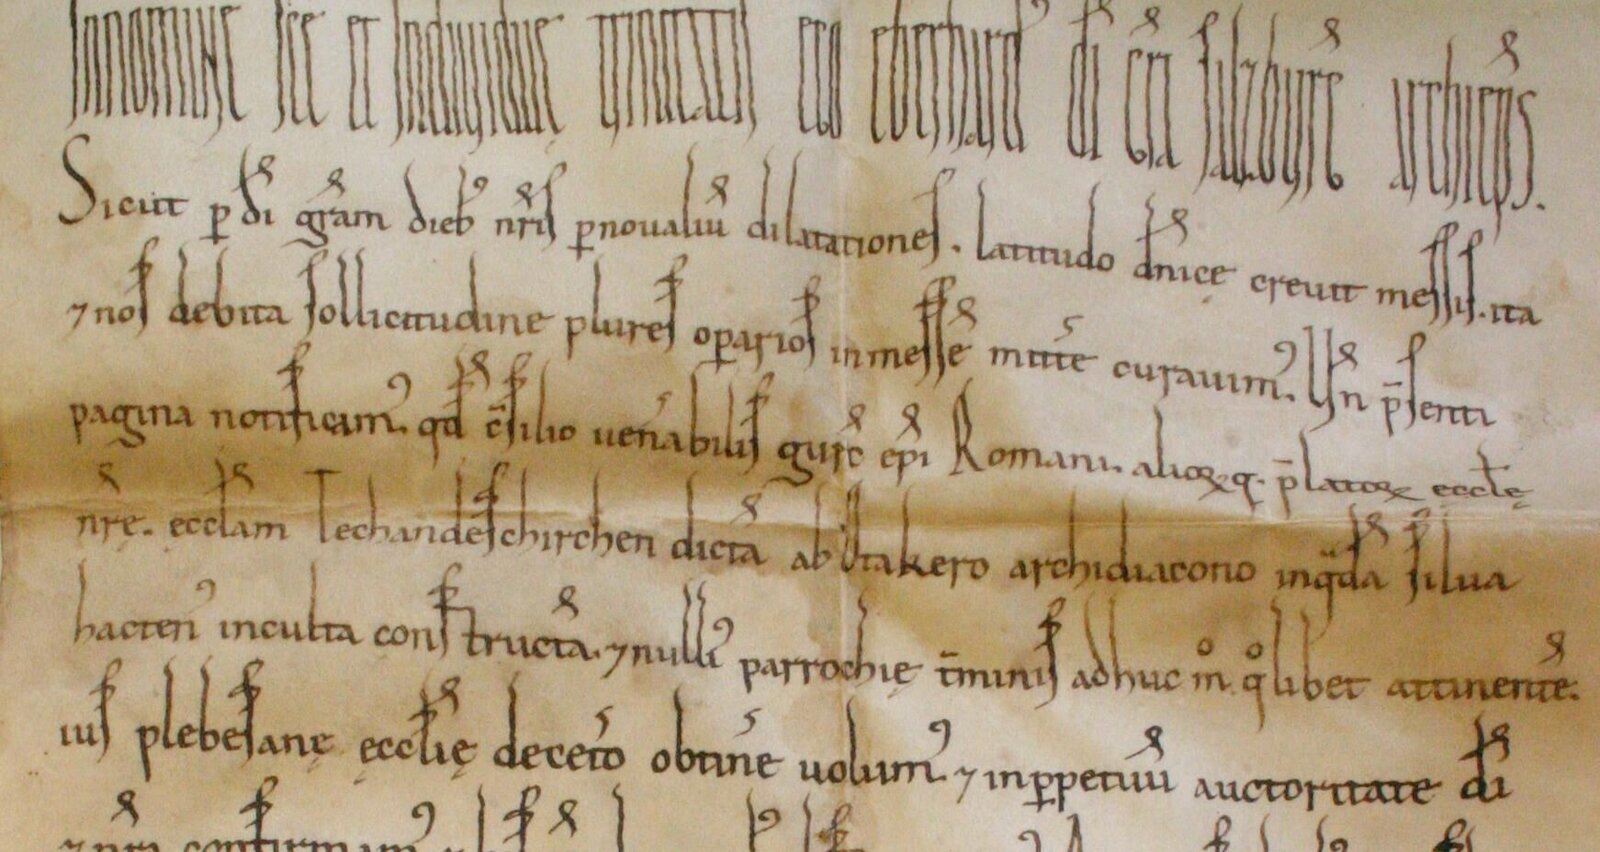 In nomine sce et indiuidue trinitatis ego eberhard' di gra salzburg archieps.
Sicut p di gram dieb' nris p noualiu dilatationes. latitudo dnice creuit messis. ita
⁊ nos debita sollicitudine plures oparios in messe mitte curauim'. Vn psenti
pagina notificam'. qd csilio uenabilis gurc epi Romani. alioꝝq. platoꝝ eccle
nre. ecclam Techandeschirchen dicta ab Otakero archidiacono in qda silua
hacten' inculta constructa. ⁊ nulli' parrochie tminis adhuc m° q°libet attinente.
ius plebesane ecclie deceto obtine uolum'. ⁊ in ppetuu auctoritate di
⁊ nri confirmam'.